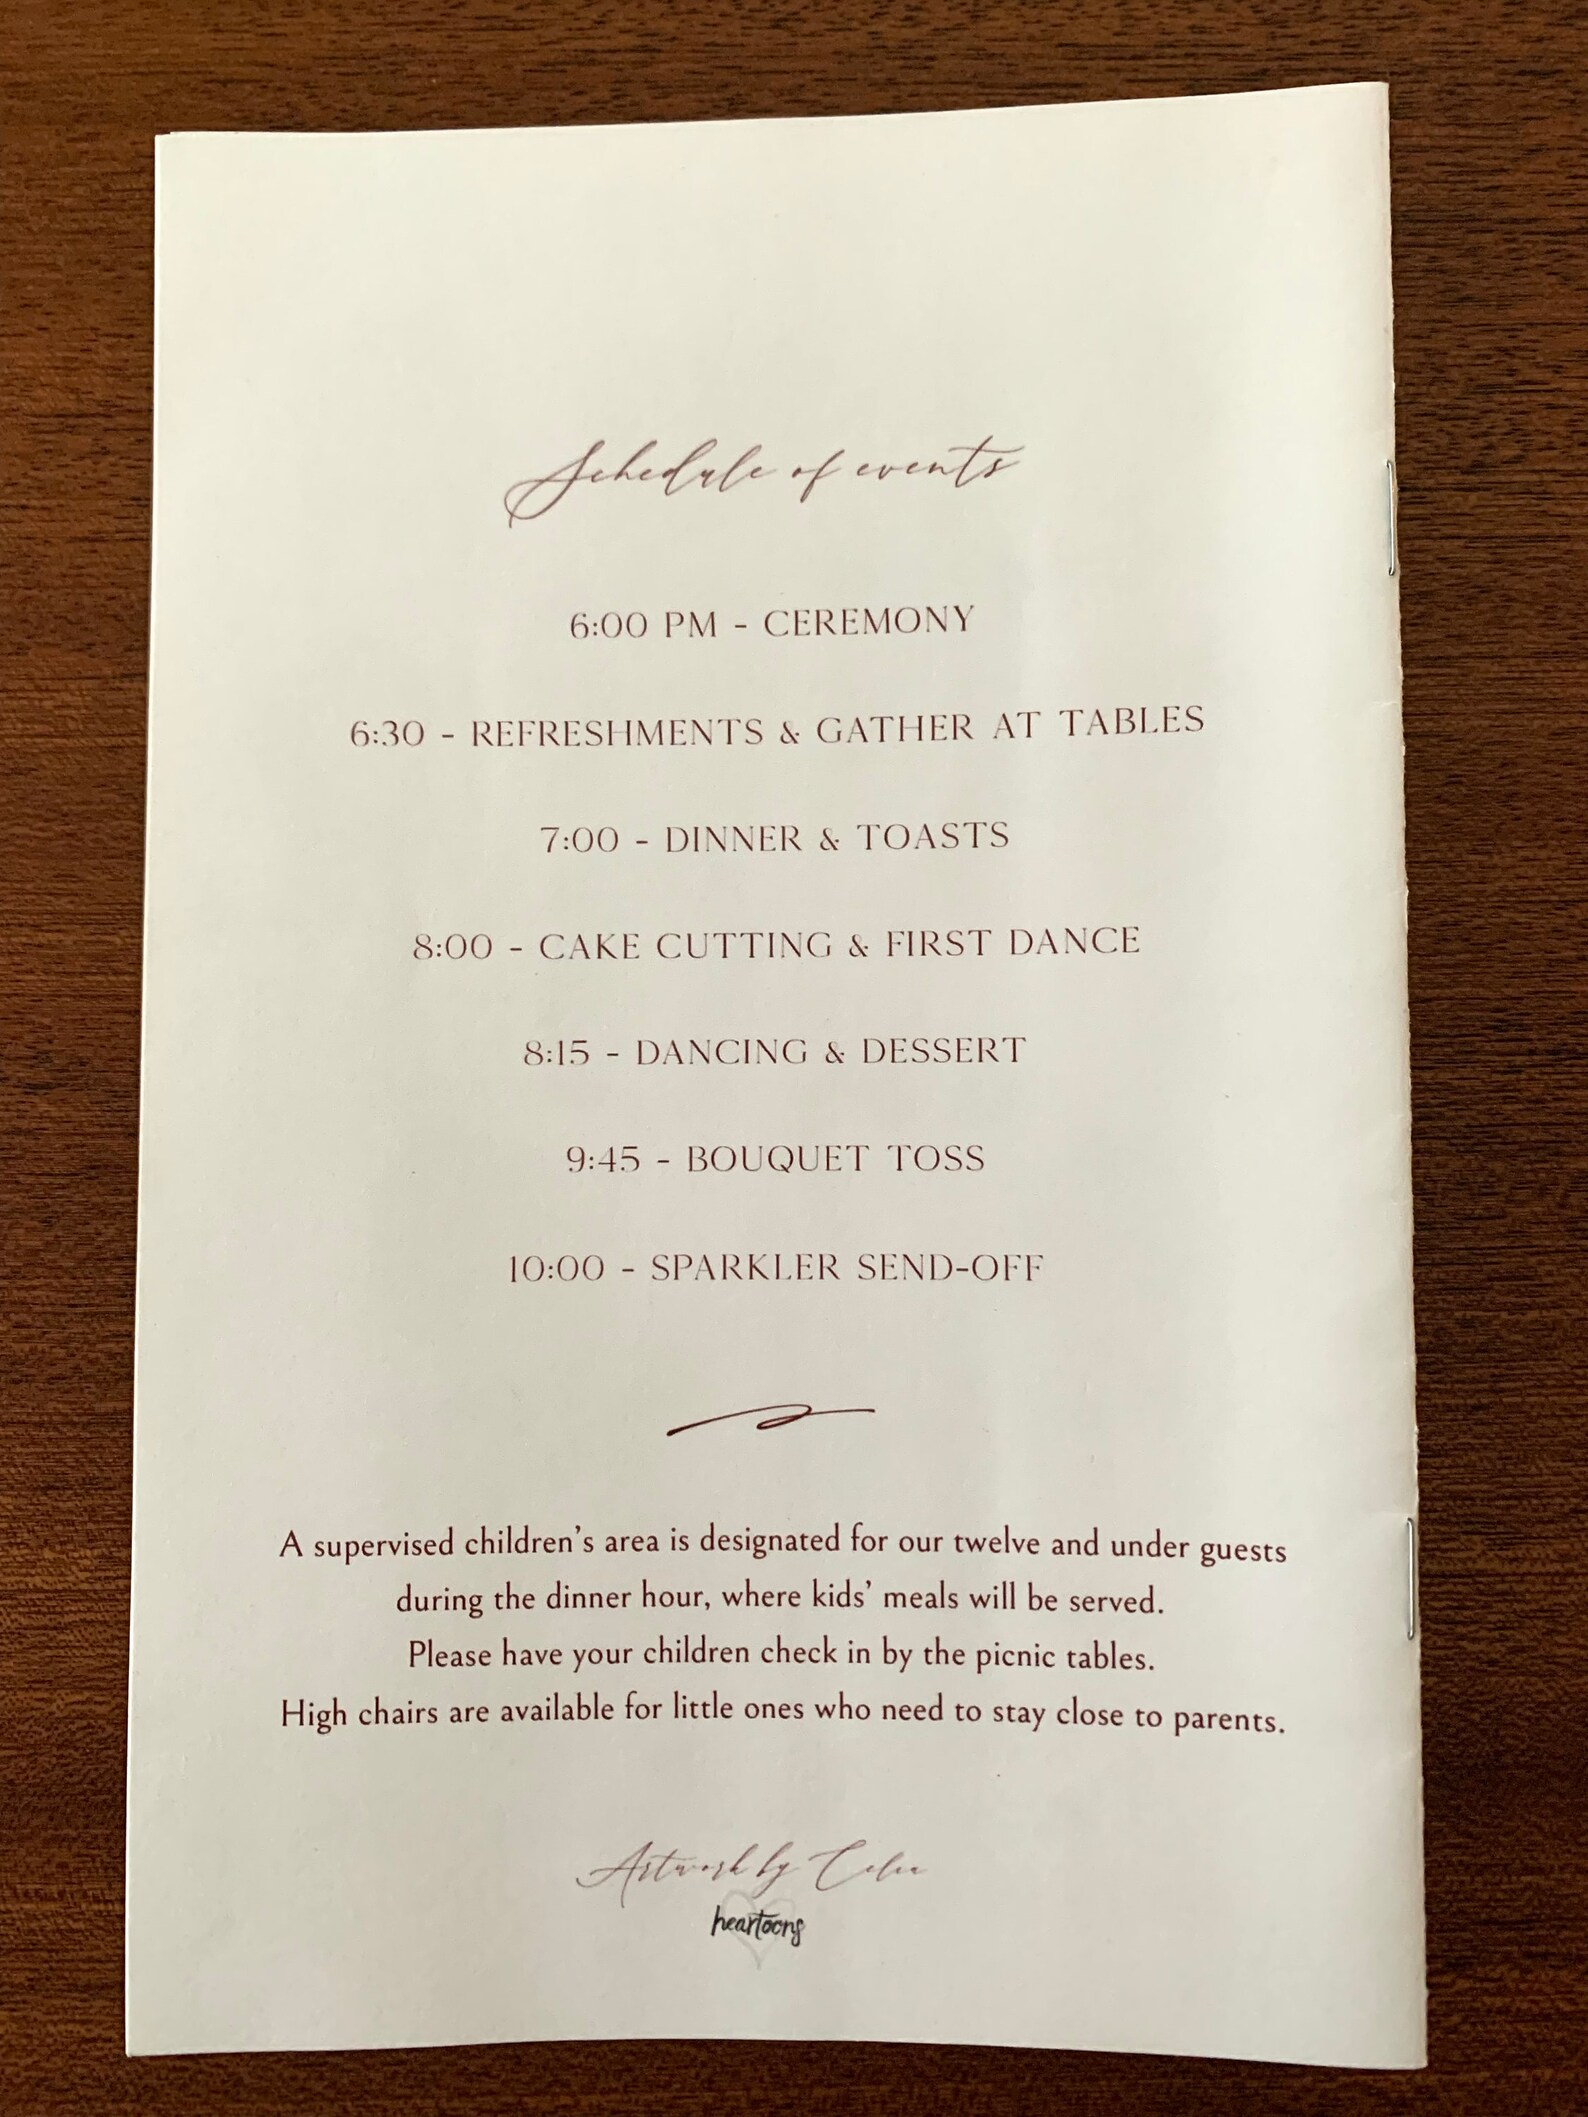 Schedule of events
6:00 PM - CEREMONY
6:30 - REFRESHMENTS & GATHER AT TABLES
7:00 - DINNER & TOASTS
8:00 - CAKE CUTTING & FIRST DANCE
8:15 - DANCING & DESSERT
9:45 - BOUQUET TOSS
10:00 - SPARKLER SEND-OFF
A supervised children's area is designated for our twelve and under guests
during the dinner hour, where kids' meals will be served.
Please have your children check in by the picnic tables.
High chairs are available for little ones who need to stay close to parents.
Artwork by